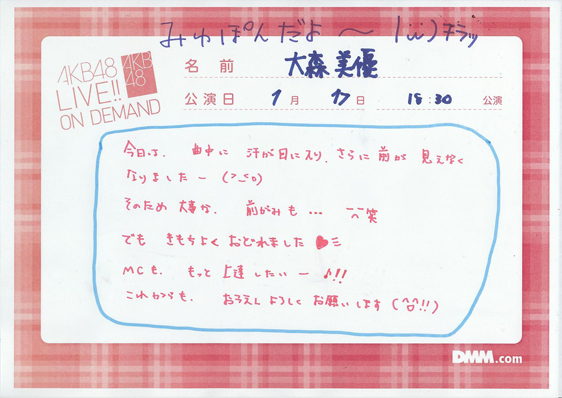 みゅぽんだよ〜 |ω・)チラッ
AKB48
LIVE!!
ON DEMAND
AKB
48
名前 大森美優
公演日 1月 17日 18:30 公演
今日は、曲中に 汗が目に入り、さらに前が 見えなく
なりましたー (>_<。)
そのため 大事な、前がみも… ^^笑
でも きもちよく おどれました♥ミ
MCも、もっと 上達したいー♪!!
これからも、おうえん よろしく お願いします (^O^!!)
DMM.com